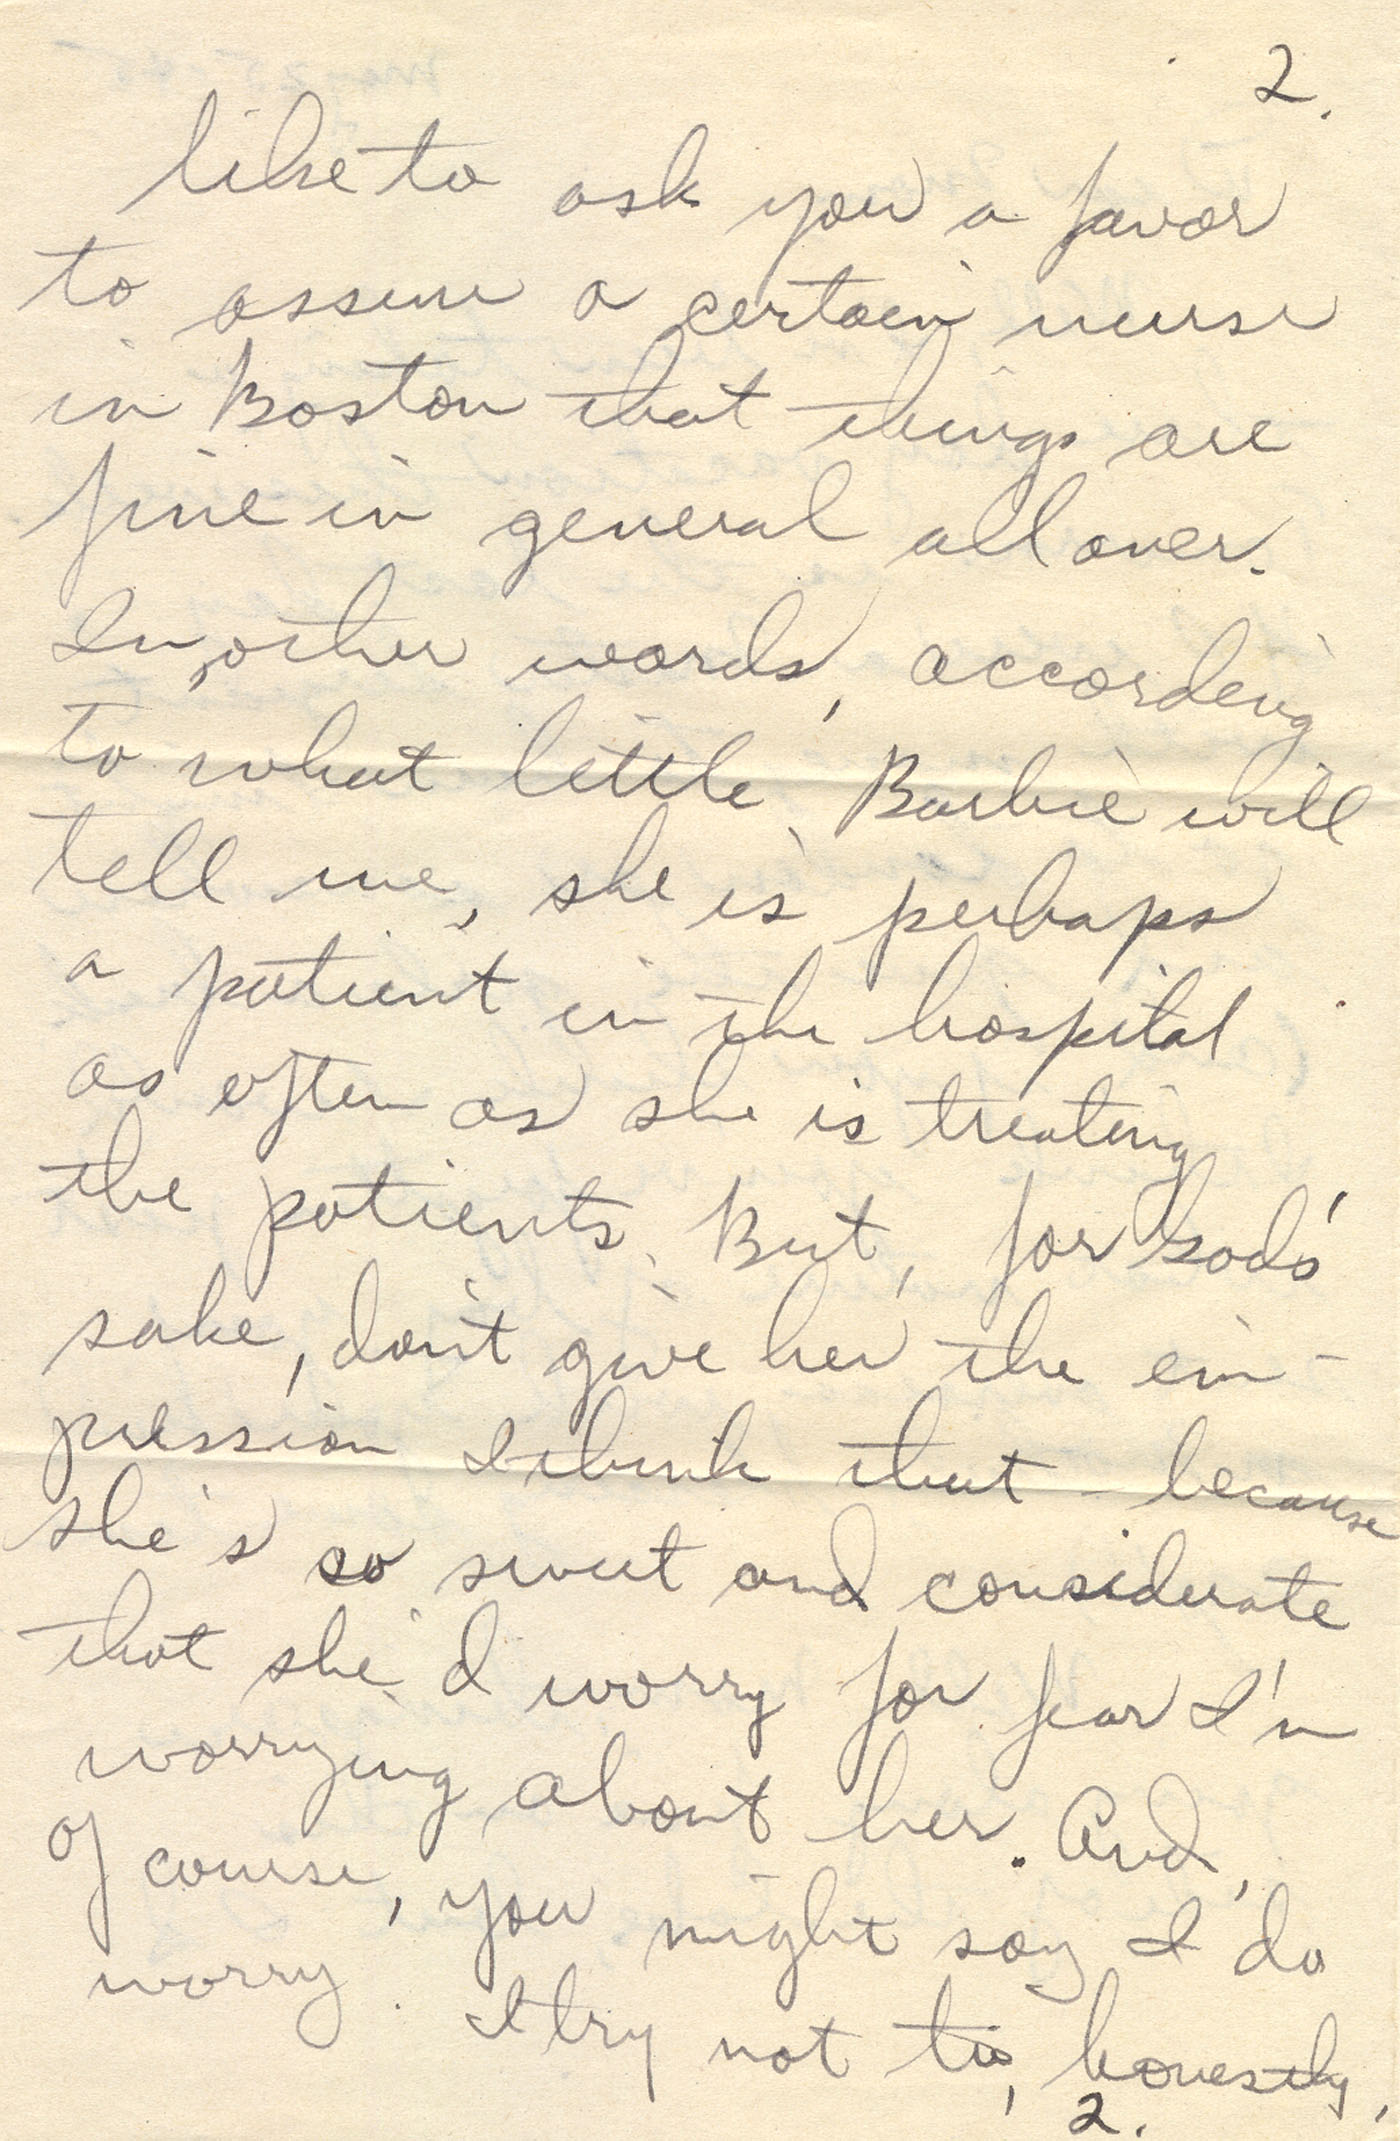 2.
like to ask you a favor
to assure a certain nurse
in Boston that things are
fine in general all over.
In, other words, according
to what little Barbie will
tell me, she is perhaps
a patient in the hospital
as often as she is treating
the patients. But, for God's
sake, don't give her the im-
pression I think that - because
she's so sweet and considerate
that she'd worry for fear I'm
worrying about her. And,
of course, you might say I do
worry. I try not to, honestly,
2.